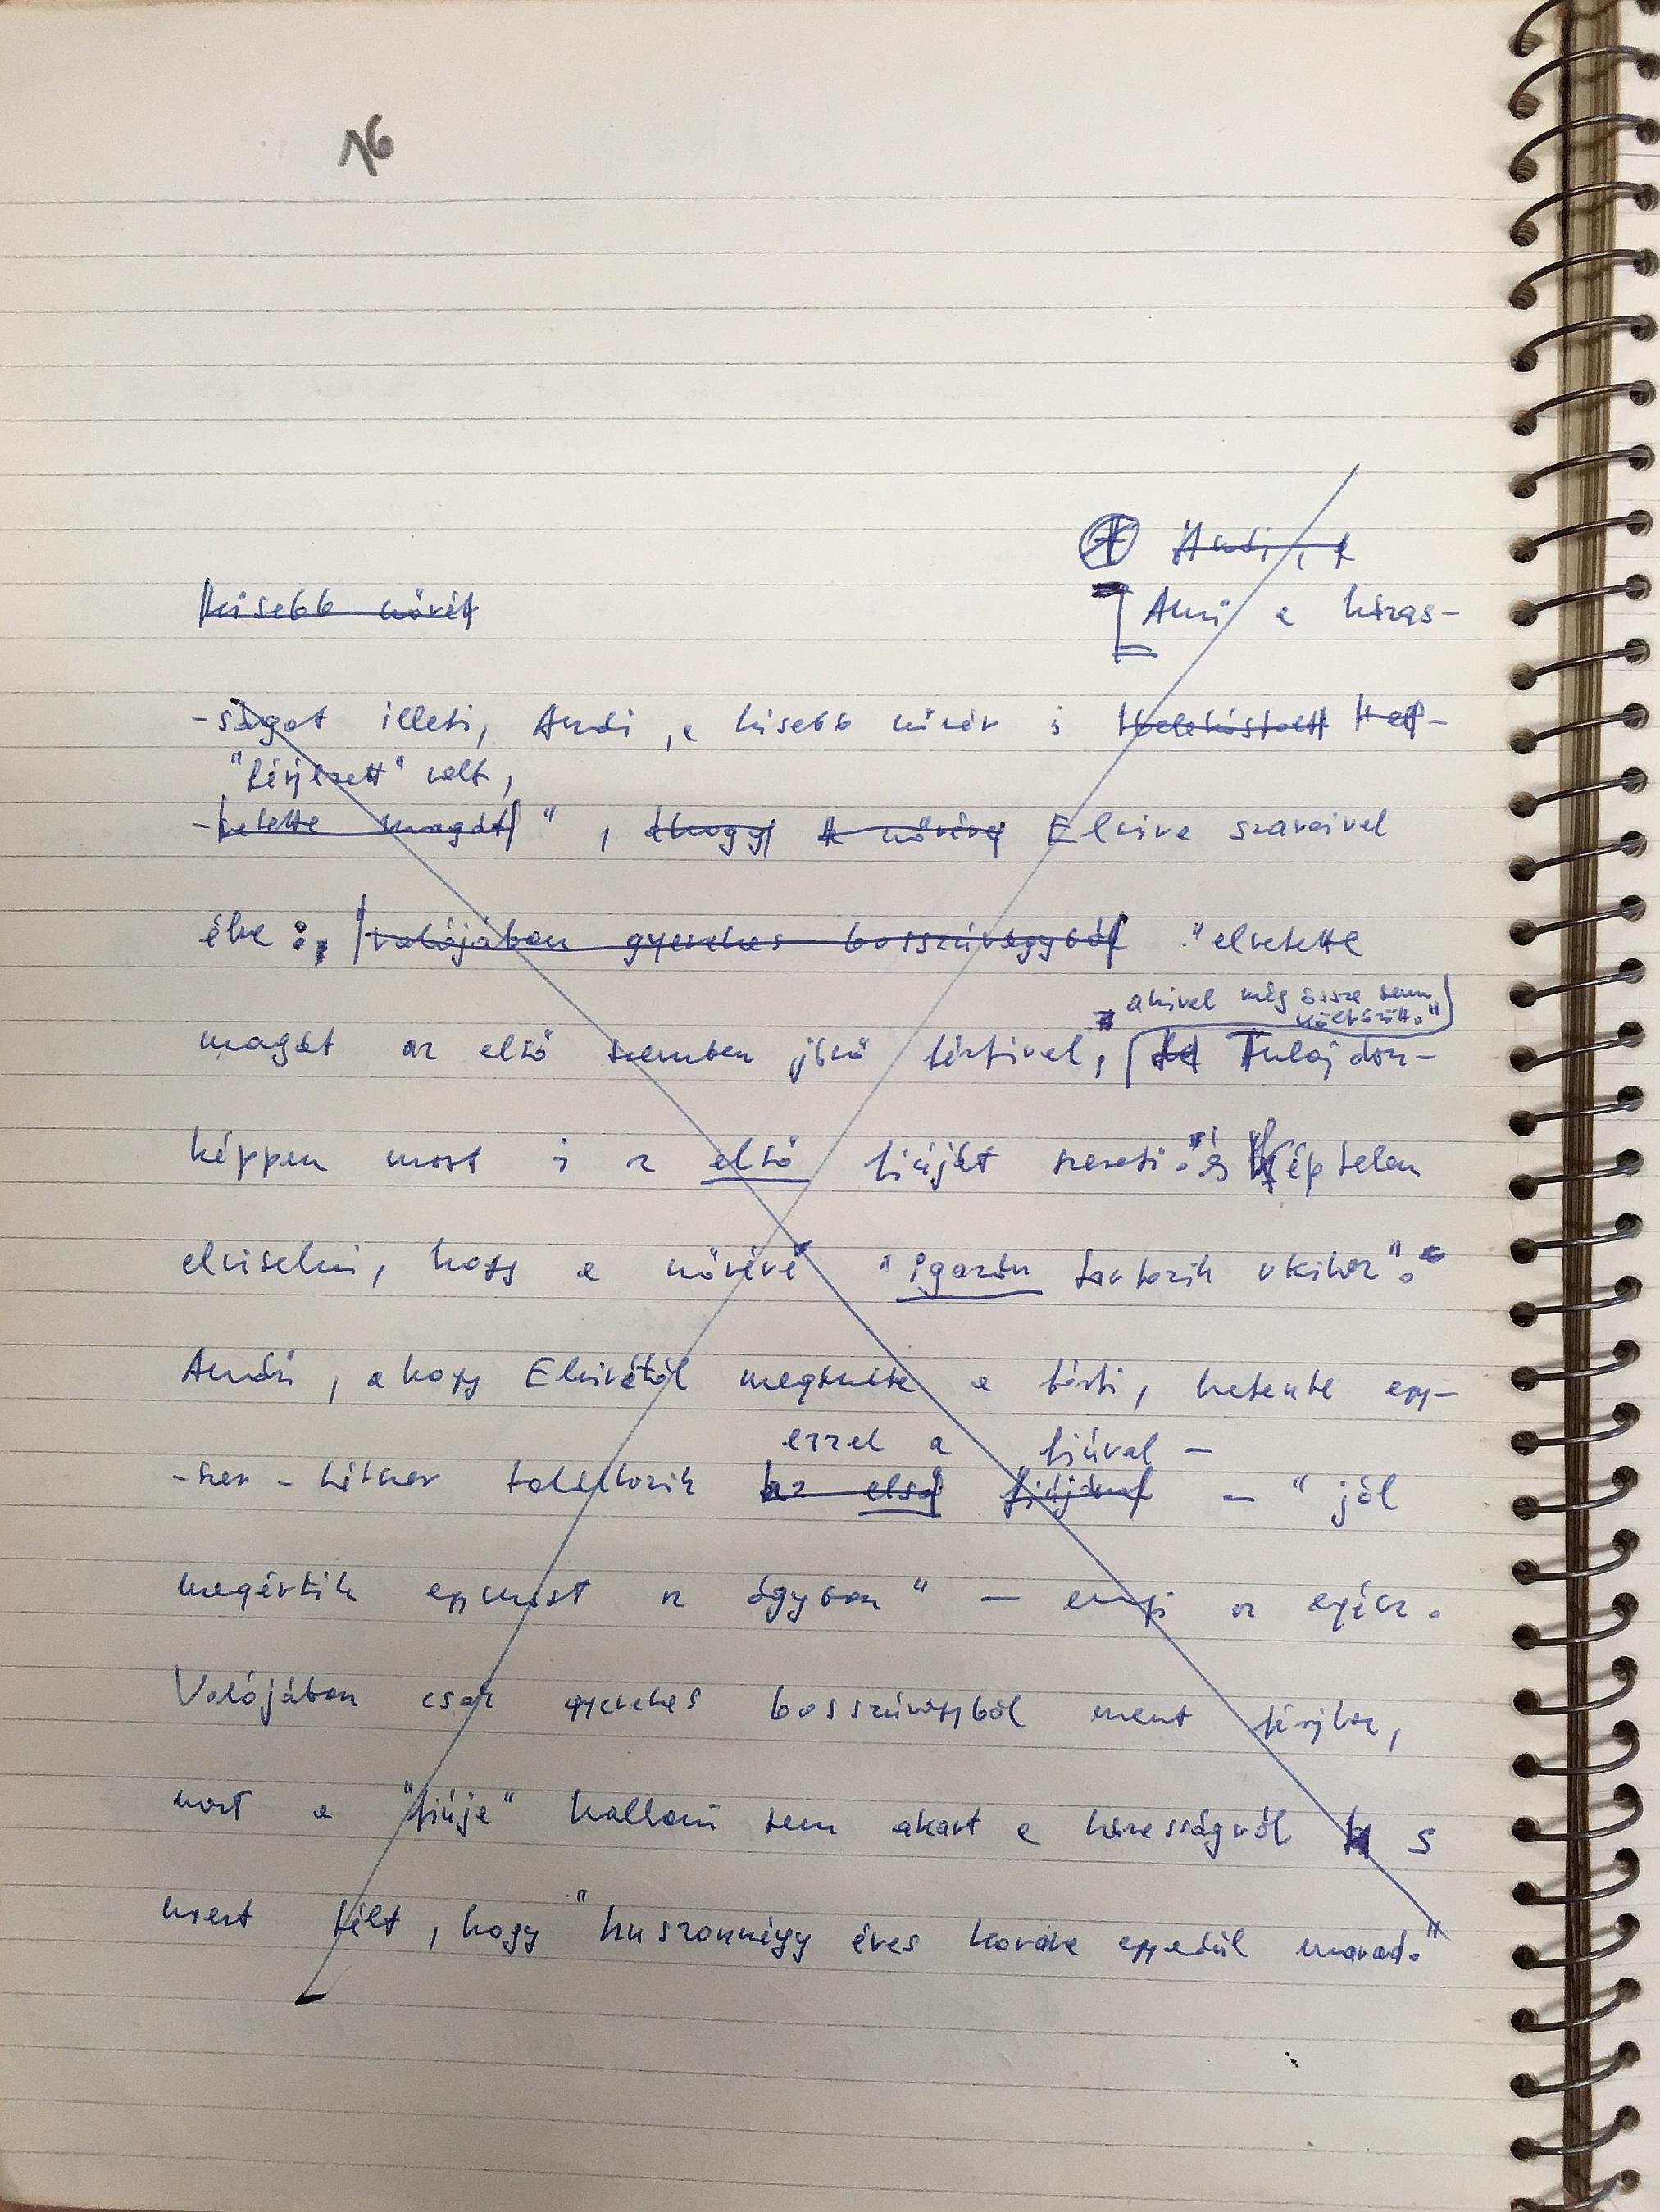 16
⊛ Andi, a
kisebb nővér
Ami a házas-
-ságot illeti, Andi, a kisebb nővér is
"férjezett" volt,
-vetette magát", ahogy a nővére Elvira szavaival
élve: valójában gyerekes bosszúvágyból "elvetette
akivel még össze sem
költözött."
magát az első szemben jövő férfivel, Tulajdon-
képpen most is az első fiúját szereti." és képtelen
elviselni, hogy a nővére "igazán tartozik vkihez".
Andi, ahogy Elvirától megtudta a férfi, hetente egy-
ezzel a fiúval -
-szer - kétszer találkozik az első fiújával - "jól
megértik egymást az ágyban" - ennyi az egész.
Valójában csak gyerekes bosszúvágyból ment férjhez,
mert a "fiúja" hallani sem akart a házasságról s
mert félt, hogy "huszonnégy éves korára egyedül marad."